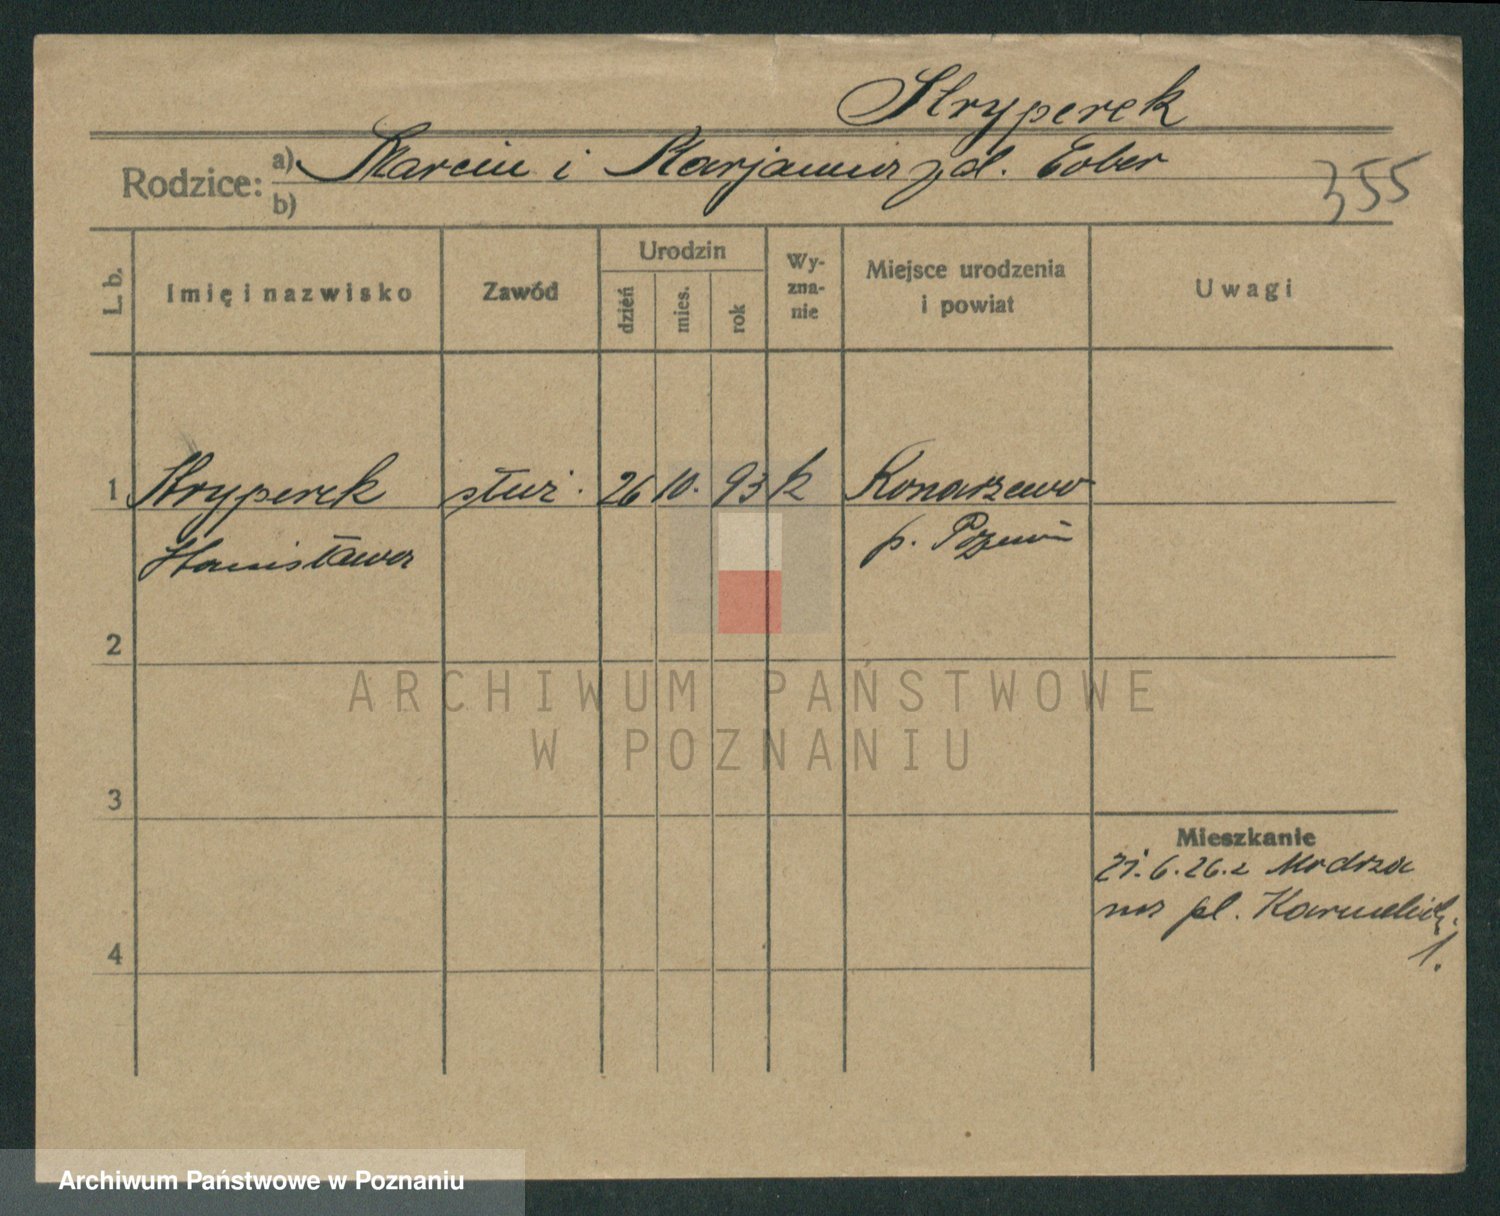 Stryperek
Rodzice: a) Marcin i Marjanna z d. Eober
b)
355
L. b.
Imię i nazwisko
Zawód
Urodzin
dzień
mies.
rok
Wy-
zna-
nie
Miejsce urodzenia
i powiat
Uwagi
1 Stryperek służ. 26 10. 93 k Konarzewo
Stanisława p.
2
3
4
Mieszkanie
21.6.26. z Modrza
na pl. Karmelick.
1.
ARCHIWUM PAŃSTWOWE
W POZNANIU
Archiwum Państwowe w Poznaniu